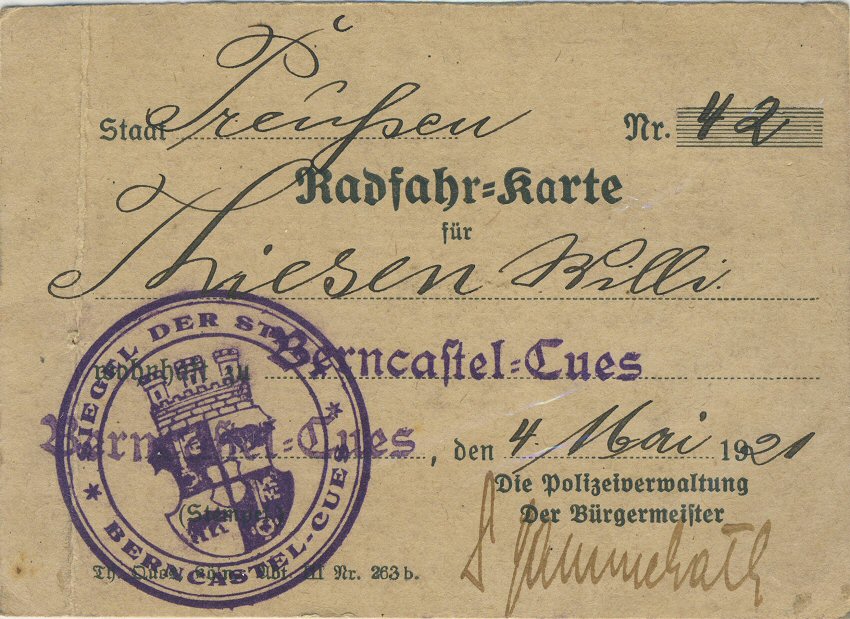 Staat Preußen Nr. 42
Radfahr=Karte
für
Thiesen Willi.
wohnhaft zu Berncastel=Cues
Berncastel=Cues, den 4. Mai 1921
Die Polizeiverwaltung
Der Bürgermeister
(Stempel)
SIEGEL DER ST
BERNCASTEL-CUES
Nr. 263 b.